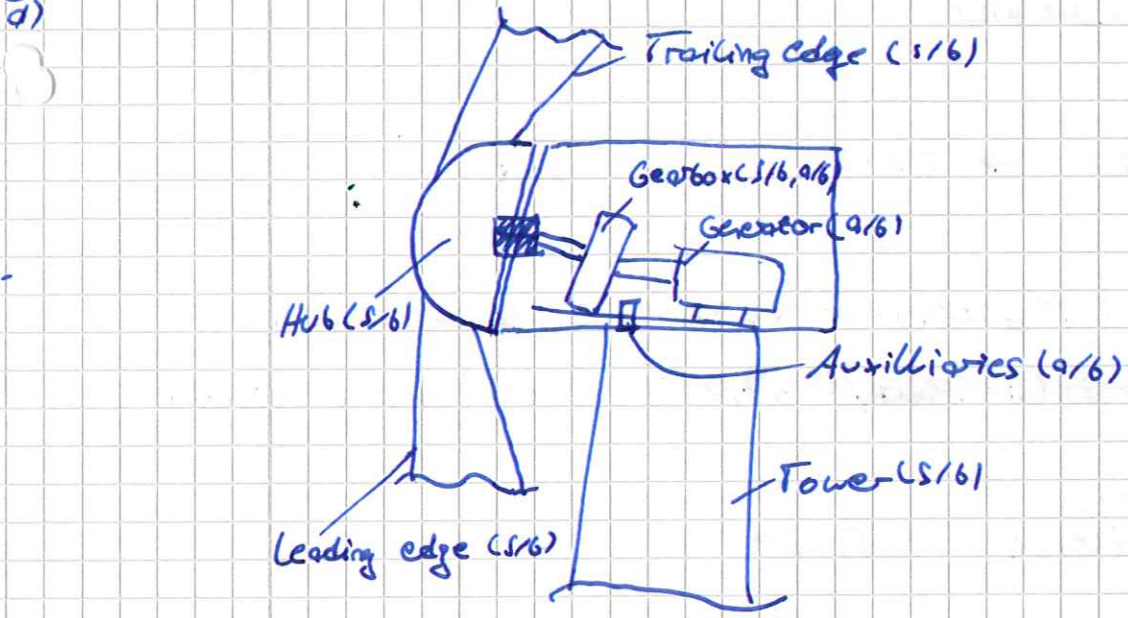 d)
Trailing edge (s/b)
Gearbox (s/b, a/b)
Generator (a/b)
Hub (s/b)
Auxilliaries (a/b)
Tower (s/b)
Leading edge (s/b)